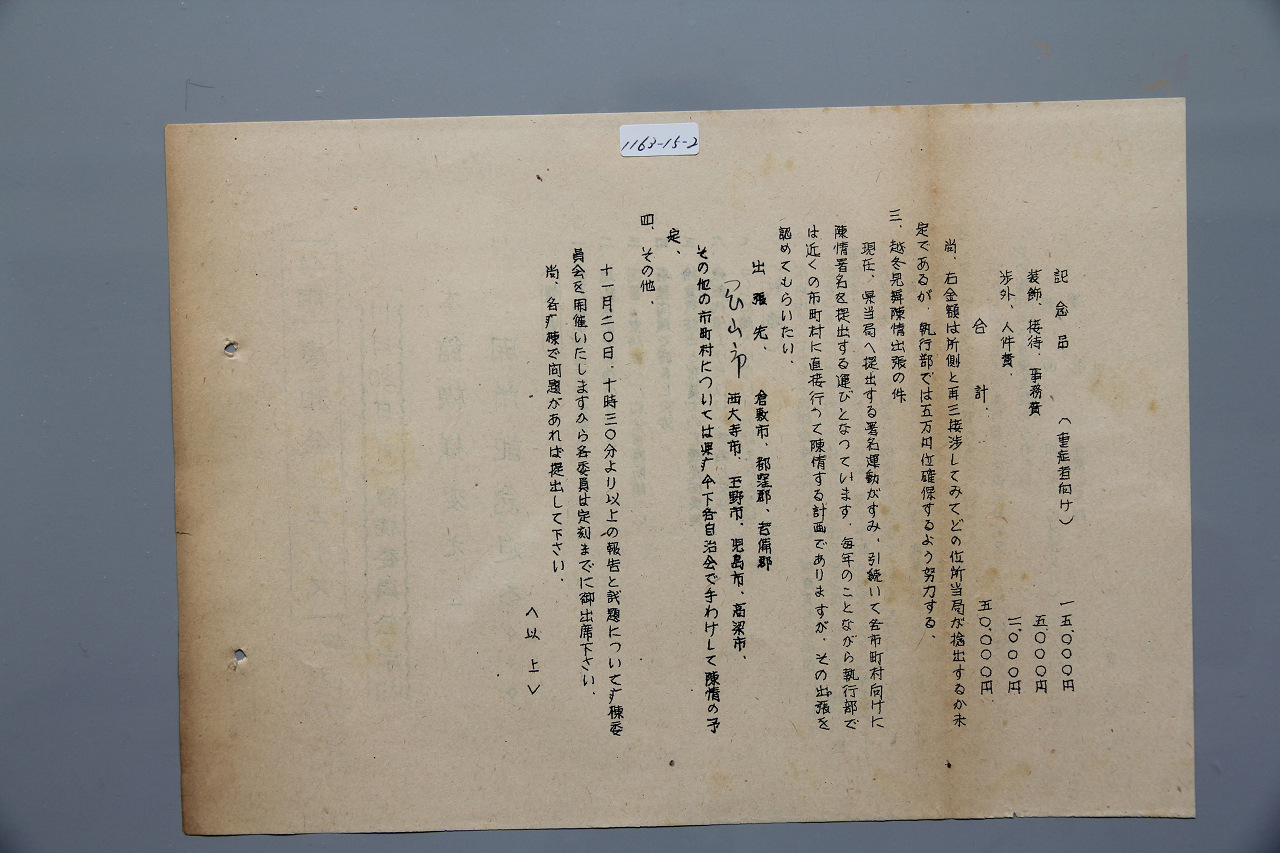 1163-15-2
記念品 (重症者向け) 一五.〇〇〇円
装飾、接待、事務費 五.〇〇〇円
渉外、人件費、 二〇.〇〇〇円
合計. 五〇.〇〇〇円
尚、右金額は所側と再三接渉してみてどの位所当局が捻出するか未
定であるが、執行部では五万円位確保するよう努力する、
三、越冬見舞陳情出張の件
現在、県当局へ提出する署名運動がすみ、引続いて各市町村向けに
陳情署名を提出する運びとなっています、毎年のことながら執行部で
は近くの市町村に直接行って陳情する計画でありますが、その出張を
認めてもらいたい、
出張先、 倉敷市、都窪郡、吉備郡
岡山市 西大寺市、玉野市、児島市、高梁市、
その他の市町村については県疒今下各自治会で手わけして陳情の予
定、
四、その他、
十一月二〇日、十時三〇分より以上の報告と試題について疒棟委
員会を開催いたしますから各委員は定刻までに御出席下さい、
尚、各疒棟で問題があれば提出して下さい、
〈以上〉